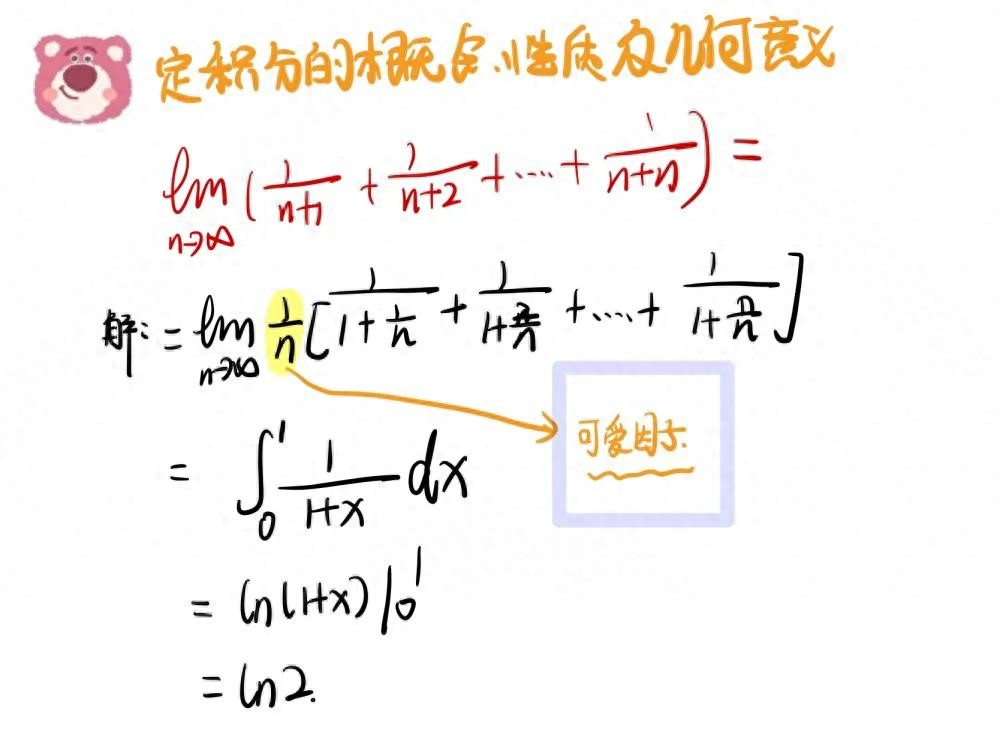 定积分的概念、性质及几何意义
lim n→∞ (1/(n+1) + 1/(n+2) + ⋯ + 1/(n+n)) =
解: = lim n→∞ 1/n [1/(1+1/n) + 1/(1+2/n) + ⋯ + 1/(1+n/n)]
可爱因子.
= ∫₀¹ 1/(1+x) dx
= ln(1+x)|₀¹
= ln2.